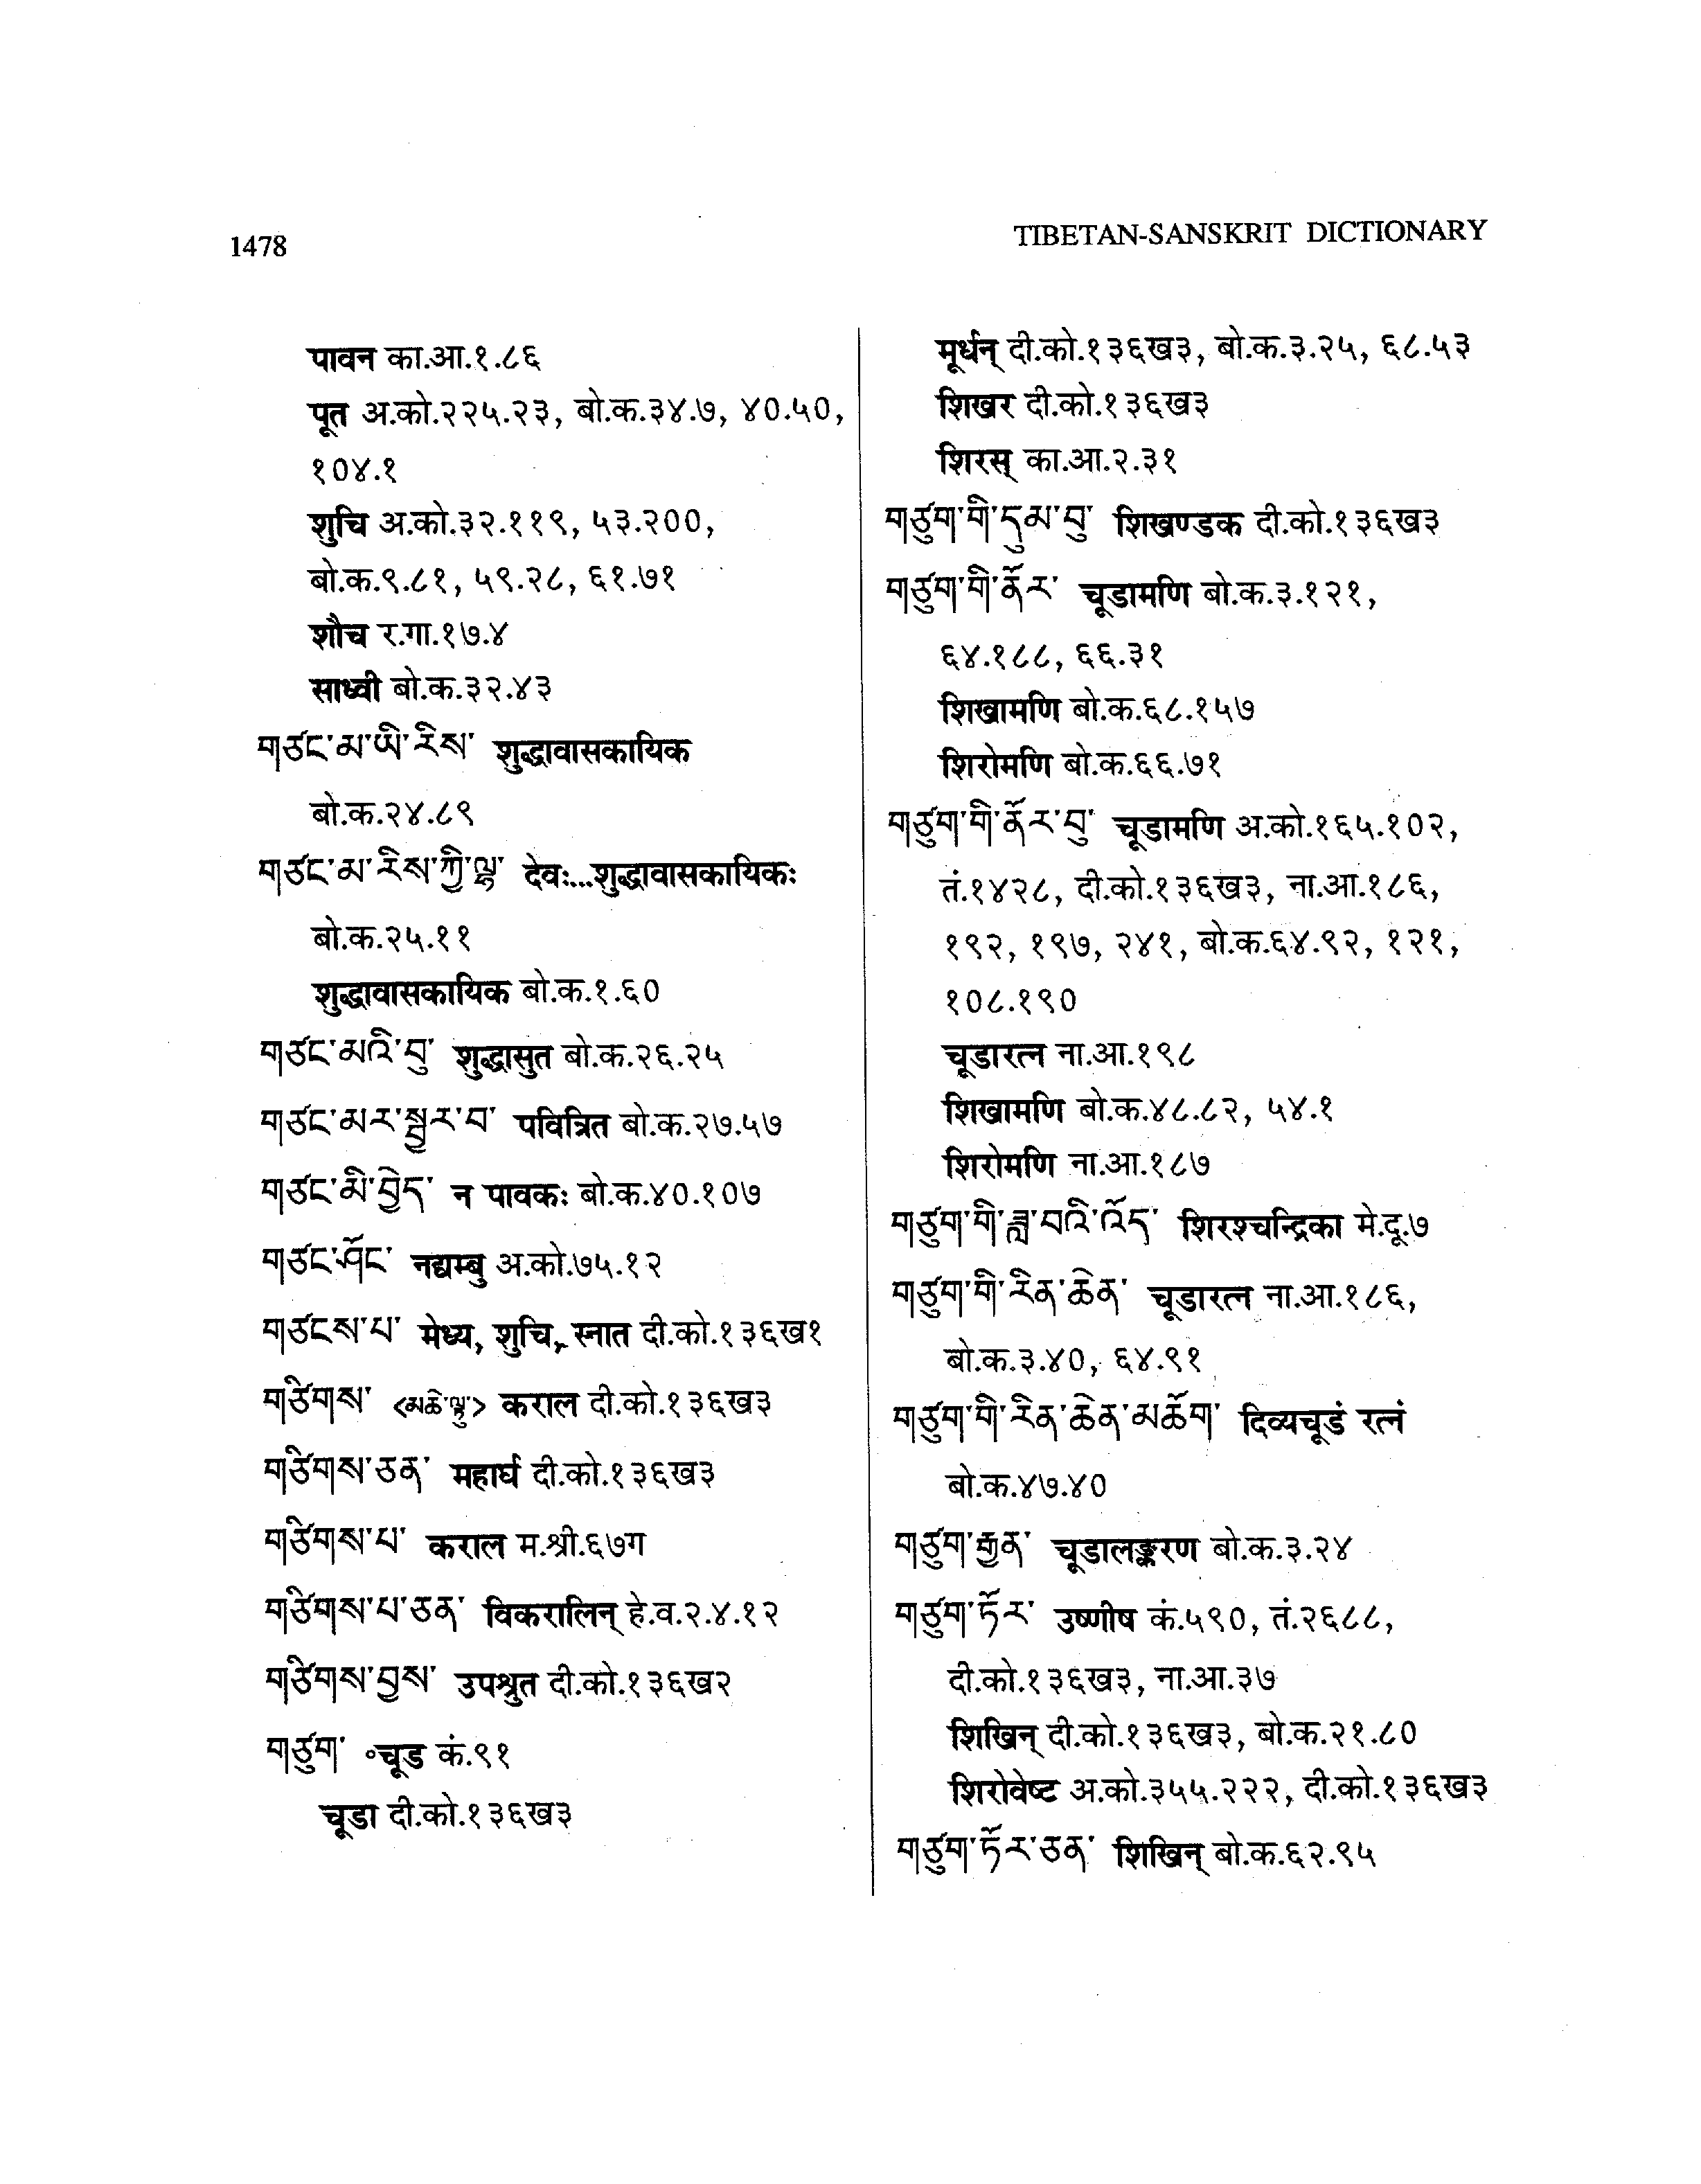 1478
TIBETAN-SANSKRIT DICTIONARY
पावन का.आ.१.८६
पूत अ.को.२२५.२३, बो.क.३४.७, ४०.५०,
१०४.१
शुचि अ.को.३२.११९, ५३.२००,
बो.क.९.८१, ५९.२८, ६१.७१
शौच र.गा.१७.४
साध्वी बो.क.३२.४३
གཙང་མ་ཡི་རིས་ शुद्धावासकायिक
बो.क.२४.८९
གཙང་མ་རིས་ཀྱི་ལྷ་ देवः...शुद्धावासकायिकः
बो.क.२५.११
शुद्धावासकायिक बो.क.१.६०
གཙང་མའི་བུ་ शुद्धासुत बो.क.२६.२५
གཙང་མར་སྦྱར་བ་ पवित्रित बो.क.२७.५७
གཙང་མི་བྱེད་ न पावकः बो.क.४०.१०७
གཙང་ཤོང་ नद्यम्बु अ.को.७५.१२
གཙངས་པ་ मेध्य, शुचि, स्नात दी.को.१३६ख१
གཙིགས་ <མཆེ་ལྟ་བུ་> कराल दी.को.१३६ख३
གཙིགས་ཅན་ महार्घ दी.को.१३६ख३
གཙིགས་པ་ कराल म.श्री.६७ग
གཙིགས་པ་ཅན་ विकरालिन् हे.व.२.४.१२
གཙིགས་བྱས་ उपश्रुत दी.को.१३६ख२
གཙུག་ ॰चूड कं.९१
चूडा दी.को.१३६ख३
मूर्धन् दी.को.१३६ख३, बो.क.३.२५, ६८.५३
शिखर दी.को.१३६ख३
शिरस् का.आ.२.३१
གཙུག་གི་དུམ་བུ་ शिखण्डक दी.को.१३६ख३
གཙུག་གི་ནོར་ चूडामणि बो.क.३.१२१,
६४.१८८, ६६.३१
शिखामणि बो.क.६८.१५७
शिरोमणि बो.क.६६.७१
གཙུག་གི་ནོར་བུ་ चूडामणि अ.को.१६५.१०२,
तं.१४२८, दी.को.१३६ख३, ना.आ.१८६,
१९२, १९७, २४१, बो.क.६४.९२, १२१,
१०८.१९०
चूडारत्न ना.आ.१९८
शिखामणि बो.क.४८.८२, ५४.१
शिरोमणि ना.आ.१८७
གཙུག་གི་ཟླ་བའི་འོད་ शिरश्चन्द्रिका मे.दू.७
གཙུག་གི་རིན་ཆེན་ चूडारत्न ना.आ.१८६,
बो.क.३.४०, ६४.९१
གཙུག་གི་རིན་ཆེན་མཆོག་ दिव्यचूडं रत्नं
बो.क.४७.४०
གཙུག་རྒྱན་ चूडालङ्करण बो.क.३.२४
གཙུག་ཏོར་ उष्णीष कं.५९०, तं.२६८८,
दी.को.१३६ख३, ना.आ.३७
शिखिन् दी.को.१३६ख३, बो.क.२१.८०
शिरोवेष्ट अ.को.३५५.२२२, दी.को.१३६ख३
གཙུག་ཏོར་ཅན་ शिखिन् बो.क.६२.९५